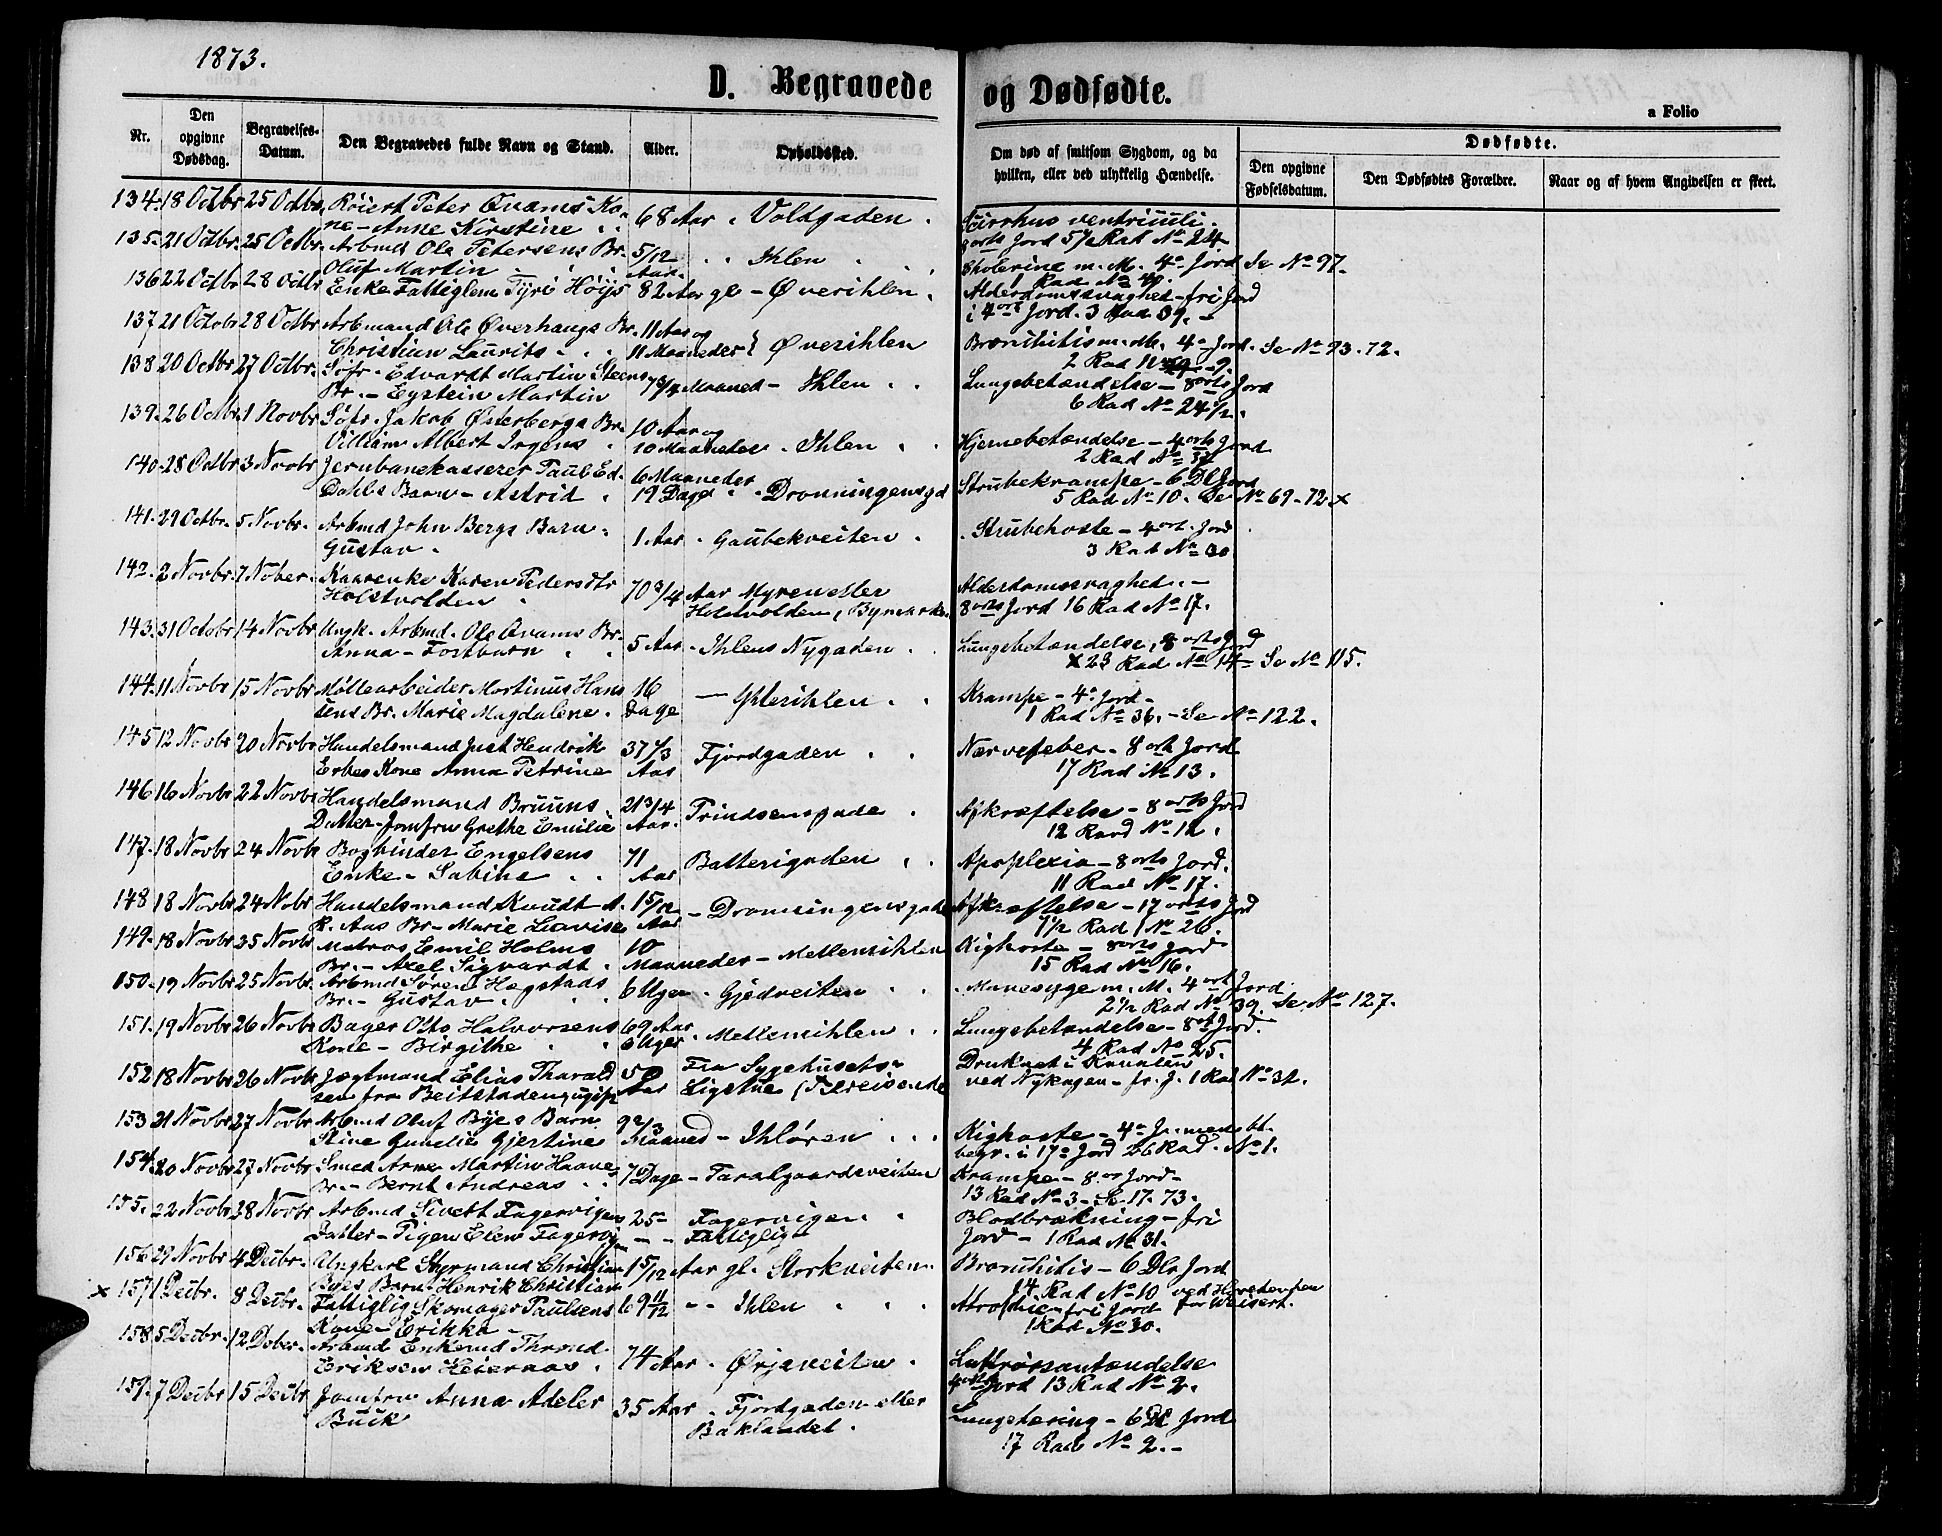 1873.
D. Begravede og Dødfødte.
a Folio
Nr.
Den opgivne Dødsdag.
Begravelses-Datum.
Den Begravedes fulde Navn og Stand.
Alder.
Opholdssted.
Om død af smitsom Sygdom, og da hvilken, eller ved ulykkelig Hændelse.
Dødfødte.
Den opgivne Fødselsdatum.
Den Dødfødtes Forældre.
Naar og af hvem Angivelsen er skeet.
134. 18 Octbr 25 Octbr Röiert Peter Qvams Ko- 68 Aar . Voldgaden . Scirrhus ventriculi.
ne - Anne Kirstine . . 8 orts Jord 5½ Rad No 24.
135. 21 Octbr. 25 Octbr. Arbmd Ole Petersens Br. 5/12 . . Ihlen . Cholerine m. M. 4o Jord Se No 97.
Oluf Martin . Aar. 1 Rad No 49.
136 22 Octbr 28 Octbr Enke Fattiglem Tyri Höijs 82 Aar gl - Øverihlen . Alderdomssvaghed - fri Jord
i 4 orts Jord. 3 Rad 39. -
137. 21 Octobr 28 Octbr. Arbmand Ole Øverhaugs Br. 11 Aar og Øverihlen Bronchitis m. M. 4o Jord. Se No 93. 72.
Christian Laurits - . . 11 Maaneder 2 Rad
138 20 Octbr 27 Octbr. Söfr. Edvardt Martin Steens 7¾ Maaned - Ihlen . . Lungebetændelse - 8 orts Jord
Br. - Eystein Martin 6 Rad No 24½.
139. 26 Octbr. 1 Novbr. Söfr. Jakob Østerbergs Br. 10 Aar og
Villiam Albert Irgens . 10 Maaneder - Ihlen . . Hjernebetændelse - 4 orts Jord
2 Rad No
140. 28 Octbr 3 Novbr Jernbanekasserer Paul Ed. 6 Maaneder
Dahls Barn - Astrid . 19 Dage . Dronningensgd Strubekrampe - 6 Dl Jord
5 Rad No 10. Se No 69 - 72 x
141. 29 Octbr. 5 Novbr. Arbmd John Bergs Barn . 1 Aar . Gaubekveiten . . Strubehoste - 4 ort. Jord .
Gustav . 3 Rad No 30
142. 2 Novbr. 7 Nober. Kaarenke Karen Pedersdtr 70¾ Aar Myren eller Alderdomssvaghed . -
Holstvolden . Holstvolden, Bymarken 8 orts Jord 16 Rad No 17.
143. 31 Octobr 14 Novbr Ungk. Arbmd. Ole Qvams Br. 5 Aar . Ihlens Nygaden . . Lungebetændelse, 8 orts Jord
Anna - Fostbarn . . x 23 Rad No 14 - Se No 115.
144. 11 Novbr 15 Novbr Möllearbeider Martinus Han 16 — Ytterihlen . . Krampe - 4o. Jord -
sens Br. Marie Magdalene . Dage 1 Rad No 36. - Se No 122.
145 12 Novbr 20 Novbr Handelsmand Just Hendrik 37⅓ Fjordgaden . . Nervefeber - 8 ort Jord
Erbes Kone Anna Petrine Aar 17 Rad No 13.
146 16 Novbr 22 Novbr Handelsmand Bruuns 21¾ Prindsensgade . Afkræftelse - 8 orts Jord
Datter - Jomfru Grethe Emilie Aar. 12 Rard No 12.
147. 18 Novbr 24 Novbr Bogbinder Engelsens 71 Batterigaden . . Apoplexia - 8 orts Jord.
Enke - Sabine . . Aar 11 Rad No 17.
148 18 Novbr 24 Novbr Handelsmand Knudt A. 15/12 - Dronningensgade Afkræftelse - 17 orts Jord
R. Aas Br - Marie Lovise Aar 7½ Rad No 26.
149. 18 Novbr 25 Novbr. Matros Emil Holms 10 Kighoste - 8 orts Jord
Br. - Axel Sigvardt . Maaneder - Mellemihlen 15 Rad No 16.
150. 19 Novbr 25 Novbr. Arbmd Sören Hegstads 6 Uger . Gjedveiten . . . Munesyge m. M. 4 ort Jord
Br. - Gustav . 2½ Rad No 39. Se No 127.
151. 19 Novbr 26 Novbr Bager Otto Halvorsens 69 Aar . Mellemihlen . . Lungebetændelse - 8 ort Jord.
Kone - Birgithe . . 6 Uger 4 Rad No 25.
152 18 Novbr 26 Novbr Jægtmand Elias Tharald Fra Sygehusets Druknet i Kanalen
sen fra Beitstaden, ugift Aar Ligstue (Tilreisende ved Nykagen - fr. J. 1 Rad No 32.
153 21 Novbr 27 Novbr Arbmd Oluf Byes Barn 9⅔ Kighoste - 4o Jr. men bl.
Stine Gunelie Gjertine Maaned - Ihlören . . . begr. i 17o Jord 26 Rad. No 1.
154. 20 Novbr 27 Novbr Smed Arne Martin Haave 7 Dage - Taralgaardsveiten Krampe - 8 or Jord -
Br. - Bernt Andreas . . 13 Rad No 3 - Se 17. 73.
155. 22 Novbr 28 Novbr Arbmd Sivert Fagervigens 25 - Fagervigen . Blodbrækning - fri
Datter - Pigen Elen Fagervig - - Fattiglig Jord - 1 Rad No 31.
156 29 Novbr 4 Decbr. Ungkarl Styrmand Christian 15/12 Aar gl. Storkveiten . Bronchitis - 6 Dlr Jord
Byes Barn - Henrik Christian 14 Rad No 10 ved Hovedveien
x 157 1 Decbr. 8 Decbr. Fattiglig Skomager Paulsens 69 11/12 - - Ihlen . . . Atrophie - fri Jord for Weisert.
Kone - Erikka - 1 Rad No 30.
158 5 Decbr. 12 Dcber. Arbmd Enkemd Thrond 74 Aar . Ørjaveiten . Luftrørsantændelse
Eriksen Heieraas . 4 orts Jord 13 Rad No 2.
159. 7 Decbr 15 Decbr. Jomfru Anna Adeler 35 Aar . Fjordgaden eller Lungetæring - 6 Dl Jord
Buck Baklandet . 17 Rad No 2. -